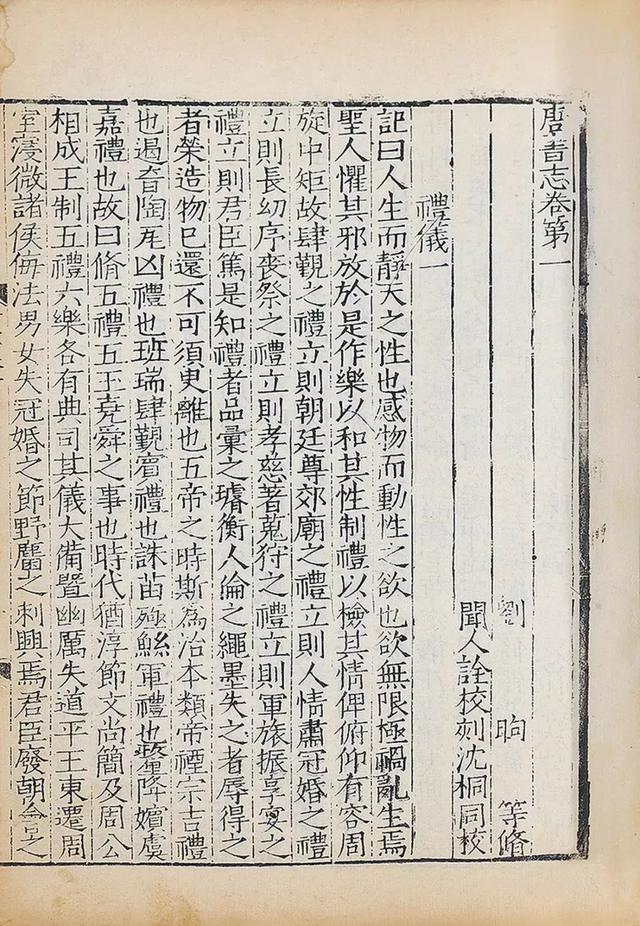 唐書志卷第一
劉昫等脩
聞人詮校刻沈桐同校
禮儀一
記曰人生而靜天之性也感物而動性之欲也欲無限極禍亂生焉
聖人懼其邪放於是作樂以和其性制禮以檢其情俾俯仰有容周
旋中矩故肆覲之禮立則朝廷尊郊廟之禮立則人情肅冠婚之禮
立則長幼序喪祭之禮立則孝慈著蒐狩之禮立則軍旅振享宴之
禮立則君臣篤是知禮者品彙之璿衡人倫之繩墨失之者辱得之
者榮造物已還不可須臾離也五帝之時斯為治本類帝禋宗吉禮
也遏音陶瓦凶禮也班瑞肆覲賓禮也誅苗殛鯀軍禮也釐降嬪虞
嘉禮也故曰脩五禮五玉堯舜之事也時代猶淳節文尚簡及周公
相成王制五禮六樂各有典司其儀大備暨幽厲失道平王東遷周
室寖微諸侯侮法男女失冠婚之節野麕之刺興焉君臣廢朝會之